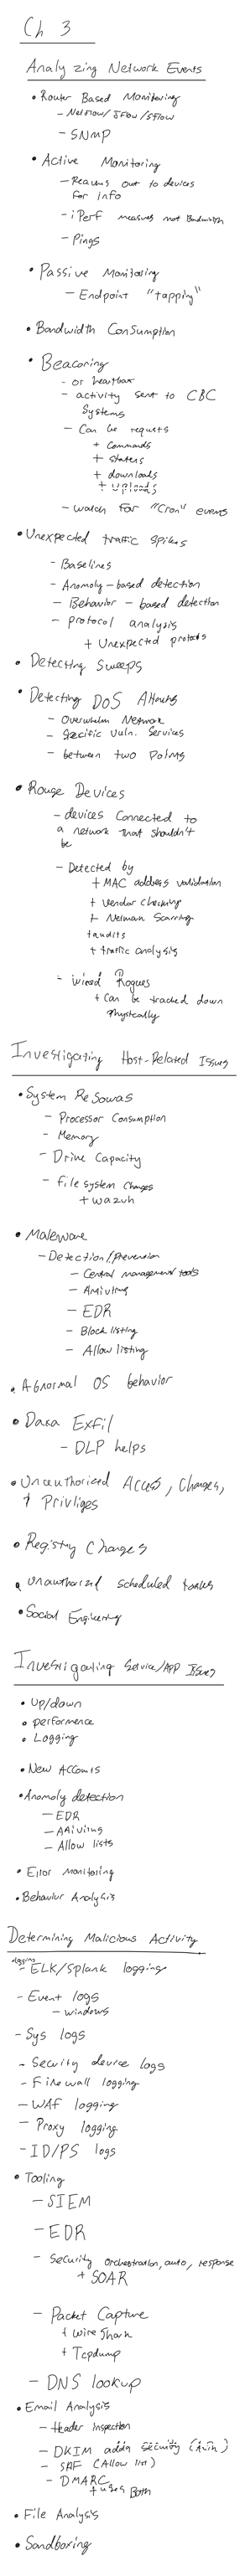 Ch 3
Analyzing Network Events
• Router Based Monitoring
- Netflow/JFlow/sflow
- SNMP
• Active Monitoring
- Reaches out to devices
for info
- iPerf measures not Bandwidth
- Pings
• Passive Monitoring
- Endpoint "tapping"
• Bandwidth Consumption
• Beaconing
- or heartbeat
- activity sent to CBC
Systems
- Can be requests
+ Commands
+ states
+ downloads
+ uploads
- watch for "Cron" events
• Unexpected traffic spikes
- Baselines
- Anomoly-based detection
- Behavior-based detection
- protocol analysis
+ Unexpected protocols
• Detecting Sweeps
• Detecting DOS Attacks
- Overwhelm Network
- Specific vuln. Services
- between two points
• Rouge Devices
- devices connected to
a network that shouldn't
be
- Detected by
+ MAC address validation
+ vendor checking
+ Network Scanning
+ audits
+ traffic analysis
- wired Rogues
+ Can be tracked down
Physically
Investigating Host-Related Issues
• System Resources
- Processor Consumption
- Memory
- Drive Capacity
- File system Changes
+ wazuh
• Maleware
- Detection/Prevension
- Central management tools
- Antivirus
- EDR
- Block listing
- Allow listing
• Abnormal OS behavior
• Data Exfil
- DLP helps
• Unauthorized Access, Changes,
+ Privliges
• Registry Changes
• Unauthorized scheduled tasks
• Social Engineering
Investigating Service/APP Issues
• Up/down
• performence
• Logging
• New Accounts
• Anomoly detection
- EDR
- Antivirus
- Allow lists
• Error Monitoring
• Behavior Analysis
Determining Malicious Activity
logging
- ELK/Splunk logging
- Event logs
- windows
- Sys logs
- Security device logs
- Firewall logging
- WAF logging
- Proxy logging
- ID/PS logs
• Tooling
- SIEM
- EDR
- Security Orchestration, auto, response
+ SOAR
- Packet Capture
+ Wire Shark
+ Tcpdump
- DNS lookup
• Email Analysis
- Header Inspection
- DKIM adds security (Auth)
- SPF (Allow list)
- DMARC
+ uses Both
• File Analysis
• Sandboxing